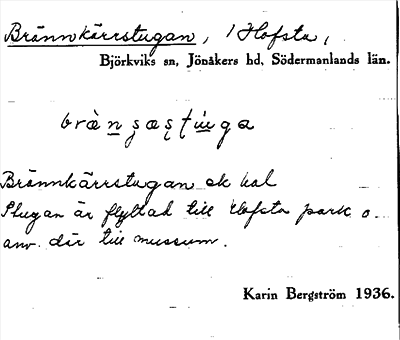 Brännkärrstugan, / Hofsta,
Björkviks sn, Jönåkers hd, Södermanlands län.
Brännkärrstugan ek kal
Stugan är flyttad till Hofsta park o.
anv. där till museum.
Karin Bergström 1936.